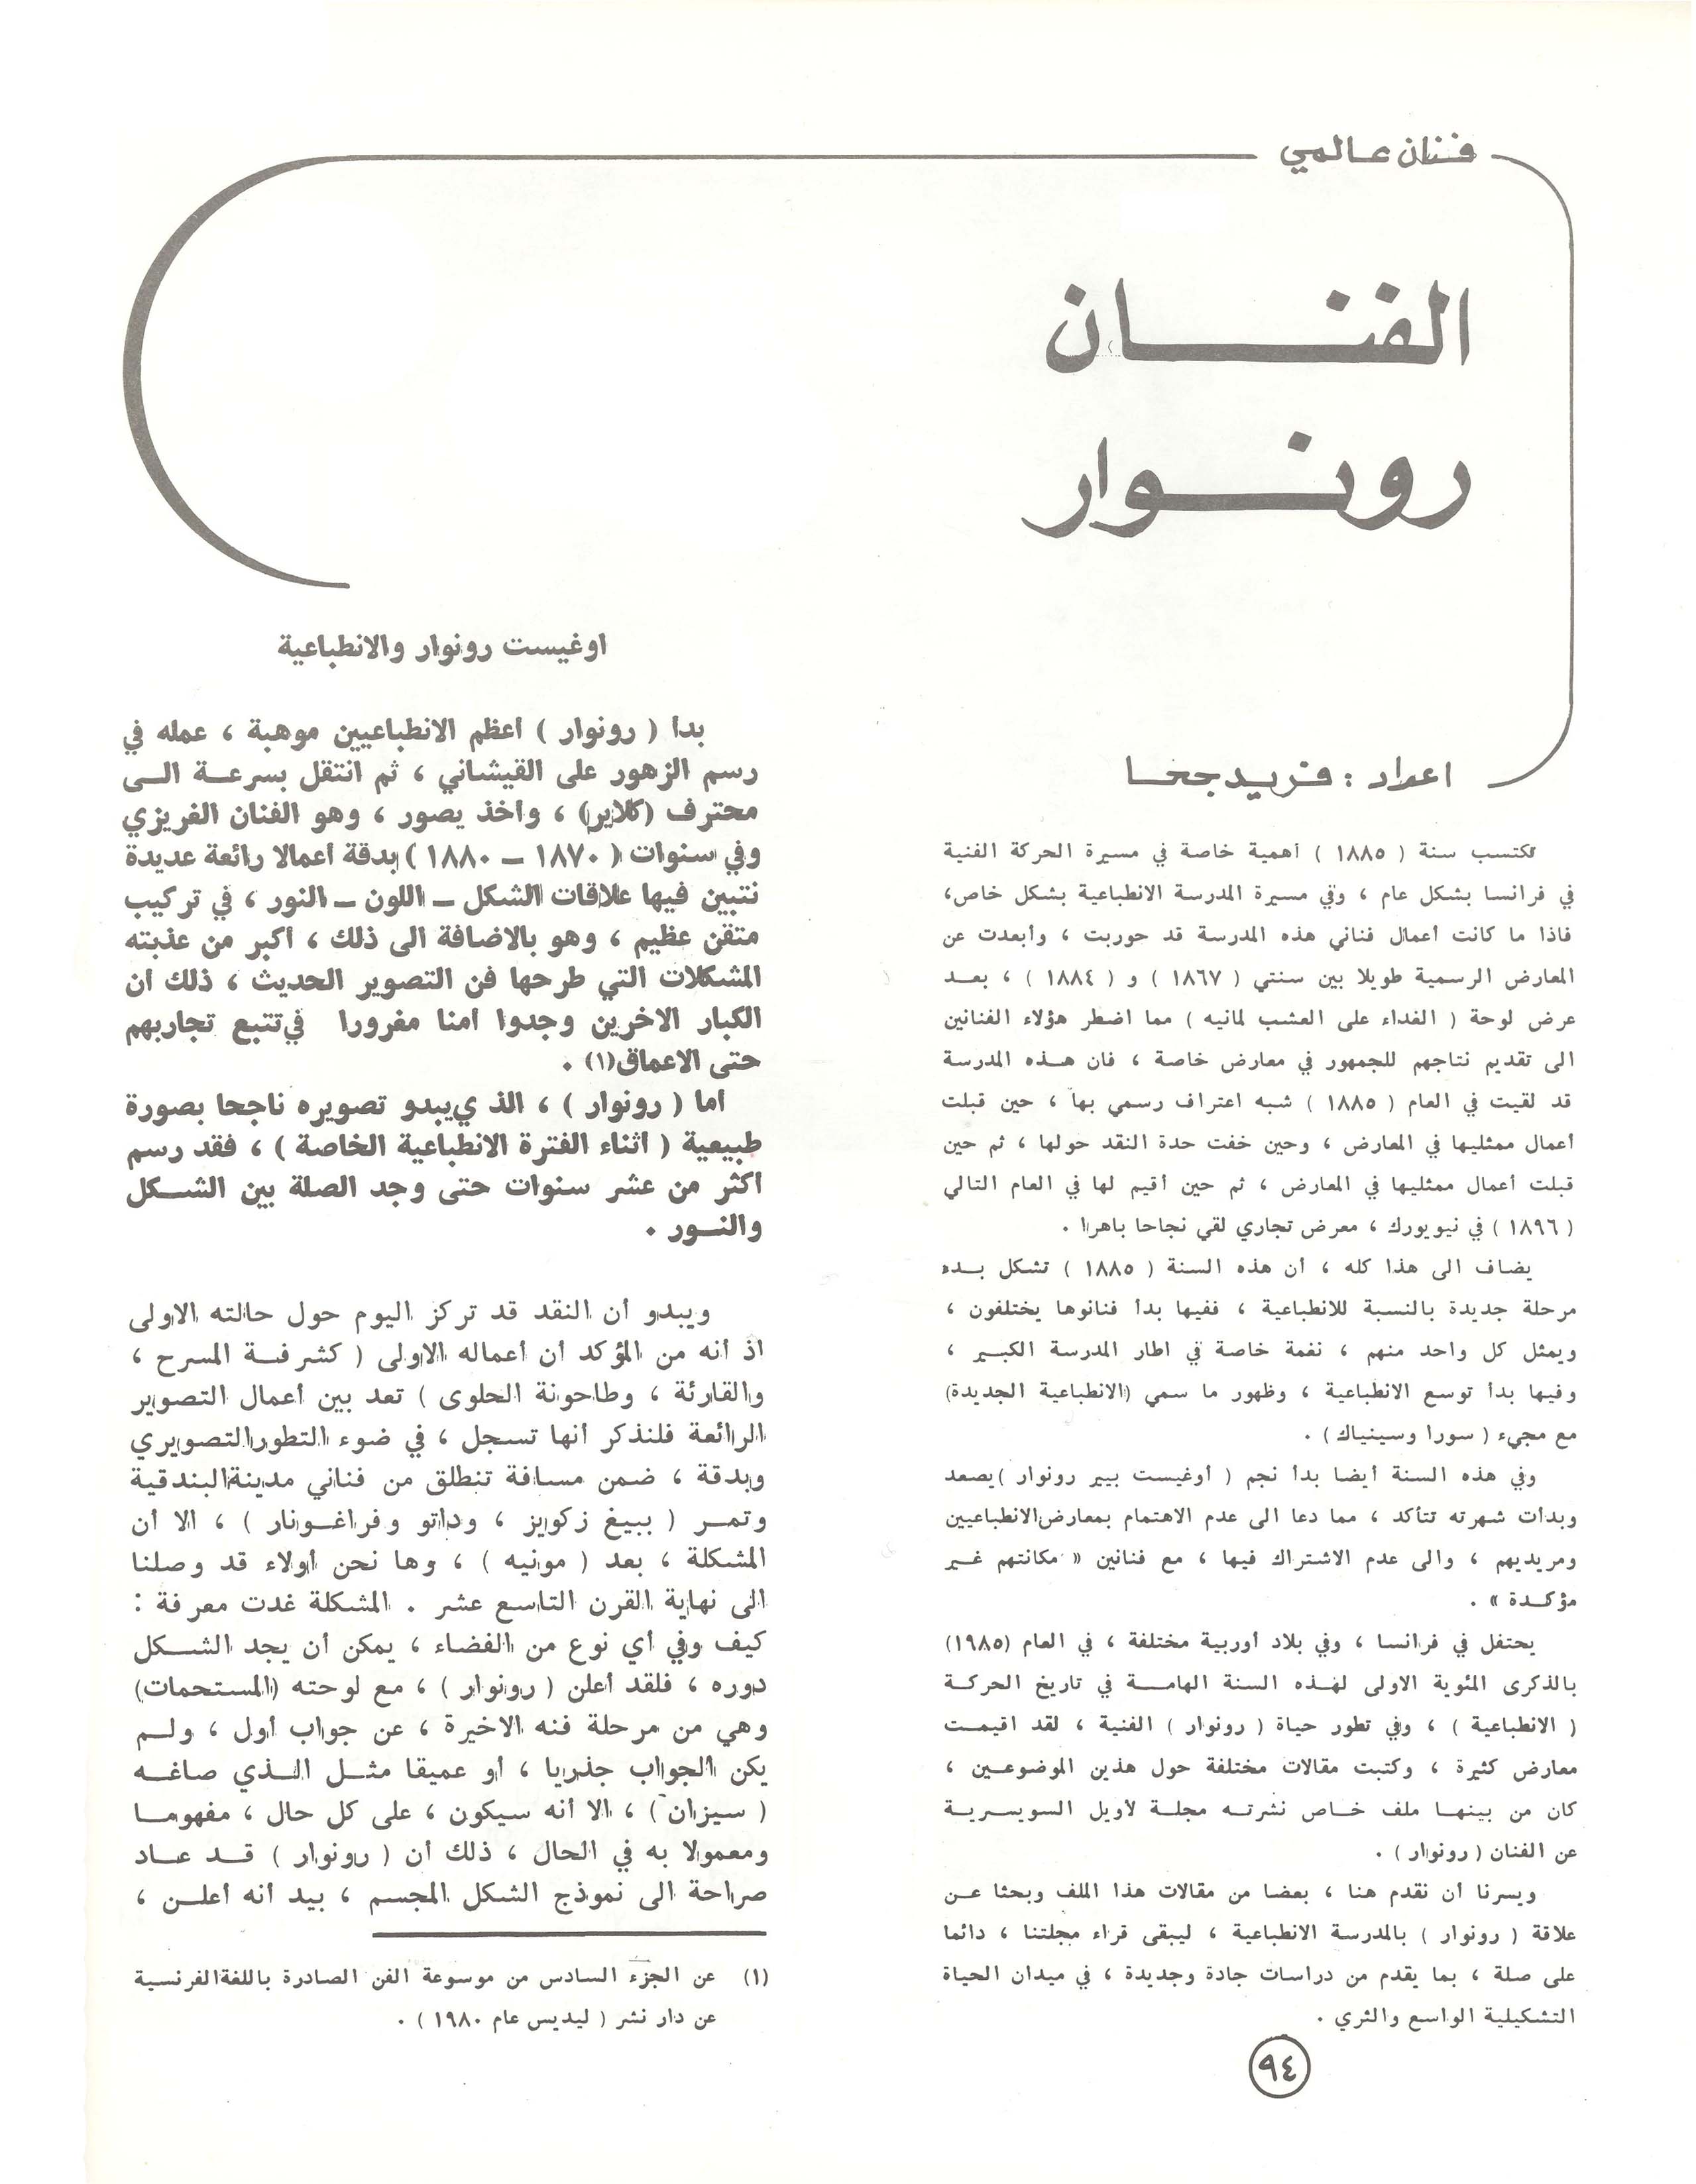 فنان عالمي
الفنان
رونوار
اعداد : فريد جحا
تكتسب سنة ( ١٨٨٥ ) أهمية خاصة في مسيرة الحركة الفنية
في فرانسا بشكل عام ، وفي مسيرة المدرسة الانطباعية بشكل خاص،
فاذا ما كانت أعمال فناني هذه المدرسة قد حوربت ، وأبعدت عن
المعارض الرسمية طويلا بين سنتي ( ١٨٦٧ ) و ( ١٨٨٤ ) ، بعد
عرض لوحة ( الغداء على العشب لمانيه ) مما اضطر هؤلاء الفنانين
الى تقديم نتاجهم للجمهور في معارض خاصة ، فان هذه المدرسة
قد لقيت في العام ( ١٨٨٥ ) شبه اعتراف رسمي بها ، حين قبلت
أعمال ممثليها في المعارض ، وحين خفت حدة النقد حولها ، ثم حين
قبلت أعمال ممثليها في المعارض ، ثم حين أقيم لها في العام التالي
( ١٨٩٦ ) في نيويورك ، معرض تجاري لقي نجاحا باهرا .
يضاف الى هذا كله ، أن هذه السنة ( ١٨٨٥ ) تشكل بدء
مرحلة جديدة بالنسبة للانطباعية ، ففيها بدأ فنانوها يختلفون ،
ويمثل كل واحد منهم ، نغمة خاصة في اطار المدرسة الكبير ،
وفيها بدأ توسع الانطباعية ، وظهور ما سمي (الانطباعية الجديدة)
مع مجيء ( سورا وسينياك ) .
وفي هذه السنة أيضا بدأ نجم ( أوغيست بيير رونوار ) يصعد
وبدأت شهرته تتأكد ، مما دعا الى عدم الاهتمام بمعارض الانطباعيين
ومريديهم ، والى عدم الاشتراك فيها ، مع فنانين « مكانتهم غير
مؤكدة » .
يحتفل في فرانسا ، وفي بلاد أوربية مختلفة ، في العام (١٩٨٥)
بالذكرى المئوية الاولى لهذه السنة الهامة في تاريخ الحركة
( الانطباعية ) ، وفي تطور حياة ( رونوار ) الفنية ، لقد اقيمت
معارض كثيرة ، وكتبت مقالات مختلفة حول هذين الموضوعين ،
كان من بينها ملف خاص نشرته مجلة لأويل السويسرية
عن الفنان ( رونوار ) .
ويسرنا أن نقدم هنا ، بعضا من مقالات هذا الملف وبحثا عن
علاقة ( رونوار ) بالمدرسة الانطباعية ، ليبقى قراء مجلتنا ، دائما
على صلة ، بما يقدم من دراسات جادة وجديدة ، في ميدان الحياة
التشكيلية الواسع والثري .
اوغيست رونوار والانطباعية
بدأ ( رونوار ) أعظم الانطباعيين موهبة ، عمله في
رسم الزهور على القيشاني ، ثم انتقل بسرعة الى
محترف (كلاير) ، واخذ يصور ، وهو الفنان الغريزي
وفي سنوات ( ١٨٧٠ – ١٨٨٠ ) بدقة أعمالا رائعة عديدة
نتبين فيها علاقات الشكل – اللون – النور ، في تركيب
متقن عظيم ، وهو بالاضافة الى ذلك ، أكبر من عذبته
المشكلات التي طرحها فن التصوير الحديث ، ذلك ان
الكبار الاخرين وجدوا أمنا مغرورا في تتبع تجاربهم
حتى الاعماق(١) .
اما ( رونوار ) ، الذي يبدو تصويره ناجحا بصورة
طبيعية ( أثناء الفترة الانطباعية الخاصة ) ، فقد رسم
أكثر من عشر سنوات حتى وجد الصلة بين الشكل
والنور .
ويبدو أن النقد قد تركز اليوم حول حالته الاولى
اذ أنه من المؤكد أن أعماله الاولى ( كشرفة المسرح ،
والقارئة ، وطاحونة الحلوى ) تعد بين أعمال التصوير
الرائعة فلنذكر أنها تسجل ، في ضوء التطور التصويري
وبدقة ، ضمن مسافة تنطلق من فناني مدينة البندقية
وتمر ( ببيغ زكويز ، وداتو وفراغونار ) ، الا أن
المشكلة ، بعد ( مونيه ) ، وها نحن أولاء قد وصلنا
الى نهاية القرن التاسع عشر . المشكلة غدت معرفة :
كيف وفي أي نوع من الفضاء ، يمكن أن يجد الشكل
دوره ، فلقد أعلن ( رونوار ) ، مع لوحته (المستحمات)
وهي من مرحلة فنه الاخيرة ، عن جواب أول ، ولم
يكن الجواب جذريا ، أو عميقا مثل الذي صاغه
( سيزان ) ، الا أنه سيكون ، على كل حال ، مفهوما
ومعمولا به في الحال ، ذلك أن ( رونوار ) قد عاد
صراحة الى نموذج الشكل المجسم ، بيد أنه أعلن ،
(١) عن الجزء السادس من موسوعة الفن الصادرة باللغة الفرنسية
عن دار نشر ( ليديس عام ١٩٨٠ ) .
٩٤